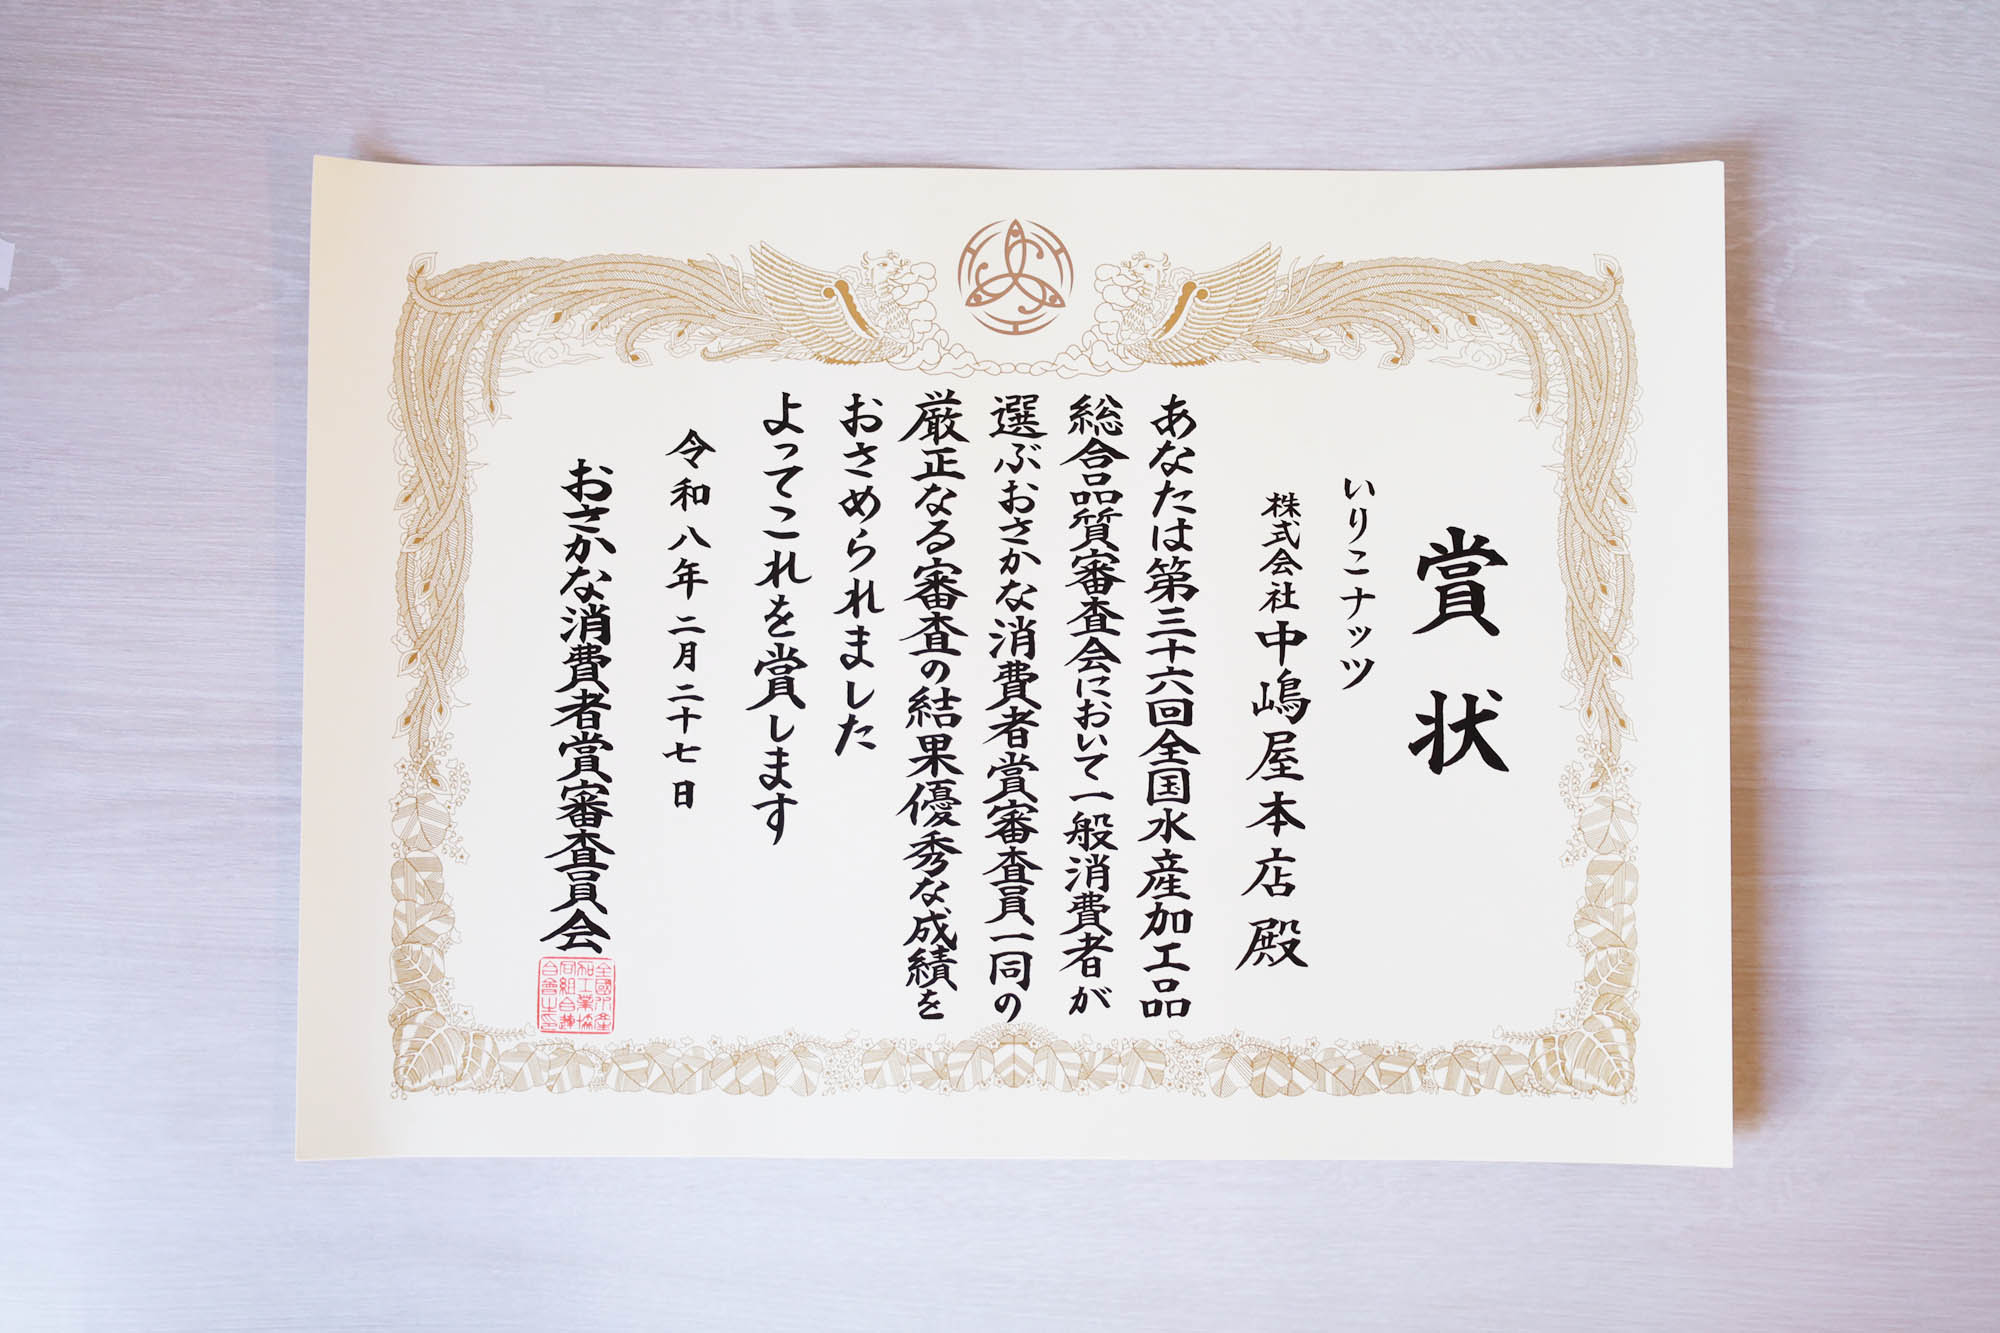 賞状
いりこナッツ
株式会社中嶋屋本店 殿
あなたは第三十六回全国水産加工品
総合品質審査会において一般消費者が
選ぶおさかな消費者賞審査員一同の
厳正なる審査の結果優秀な成績を
おさめられました
よってこれを賞します
令和八年二月二十七日
おさかな消費者賞審査員会